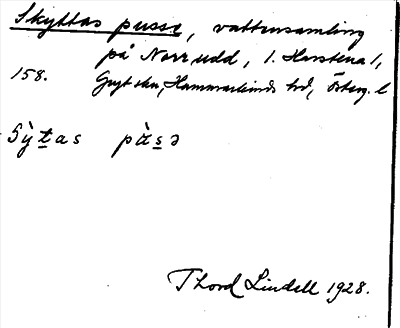 Skyttas pusse, vattensamling
på Norrudd, 1. Harstena 1,
158. Gryt skn, Hammarkinds hd, Österg. l
pùsə
Thord Lindell 1928.